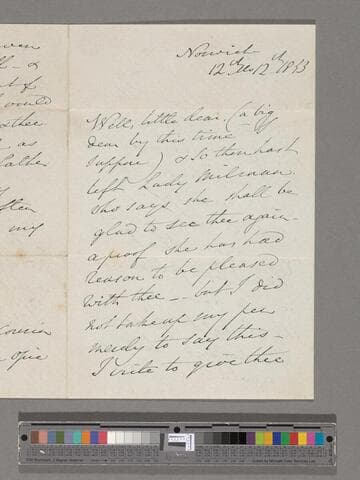 oven
- &
t of
would
& thee
as
father
often
my
Cousin
Opie
Norwich
12th Mo 12th 1833
Well, little dear (a big
dear by this time I
suppose) & so thou hast
left Lady Milman.
She says she shall be
glad to see thee again -
a proof she has had
reason to be pleased
with thee - but I did
not take up my pen
merely to say this -
I write to give thee